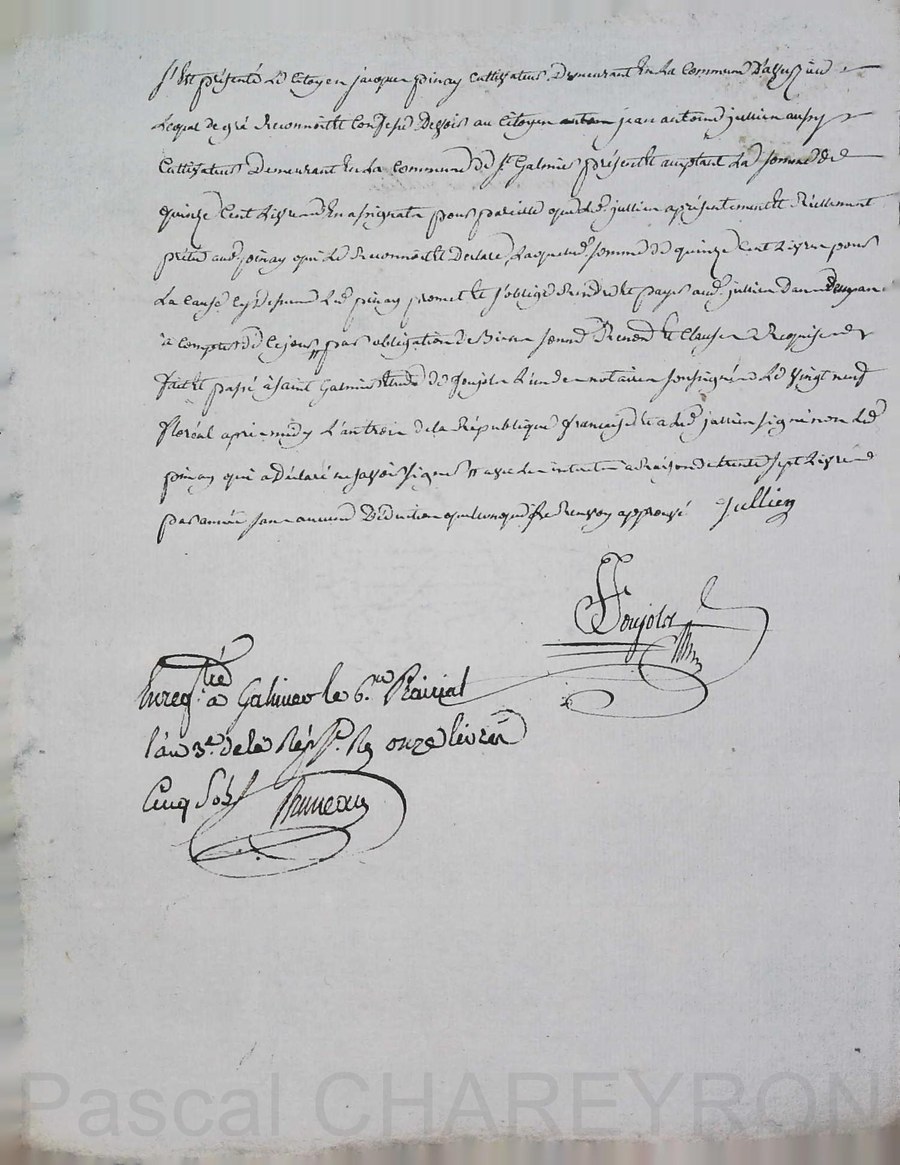 S'est présenté le Citoyen jacques pinay Cultivateur Demeurant En La Commune D'
Lequel de gré Reconnoit et Confesse Devoir au Citoyen jean antoine jullien aussy
Cultivateur Demeurant En La Commune de St Galmier présent et acceptant La somme de
quinze Cent Livres En assignats pour pareille que led. jullien a présentement et Réellement
prété aud. pinay qui Le Reconnoit et Declare, Laquelle somme de quinze Cent Livres pour
La Cause Cy dessus led pinay promet et s'oblige Rendre et payer aud. jullien dans
à Compter de Ce jour par obligation de Biens Renon et Clauses Requises
fait et passé à Saint Galmier Etude de Joujolx L'un des notaires soussignés Le vingt neuf
floréal après midy L'an trois de la République française et a led jullien signé non led
pinay qui a Déclaré ne savoir signer avec Les interets a Raison de trente sept Livres
par année sans aucune Déduction quelconque Le Renvoy approuvé Jullien
Joujolx
Enregtré a Galmier le 6. Prairial
l'an 3e. de la Rép. R onze livres
Cinq Sols Bruneau
Pascal CHAREYRON